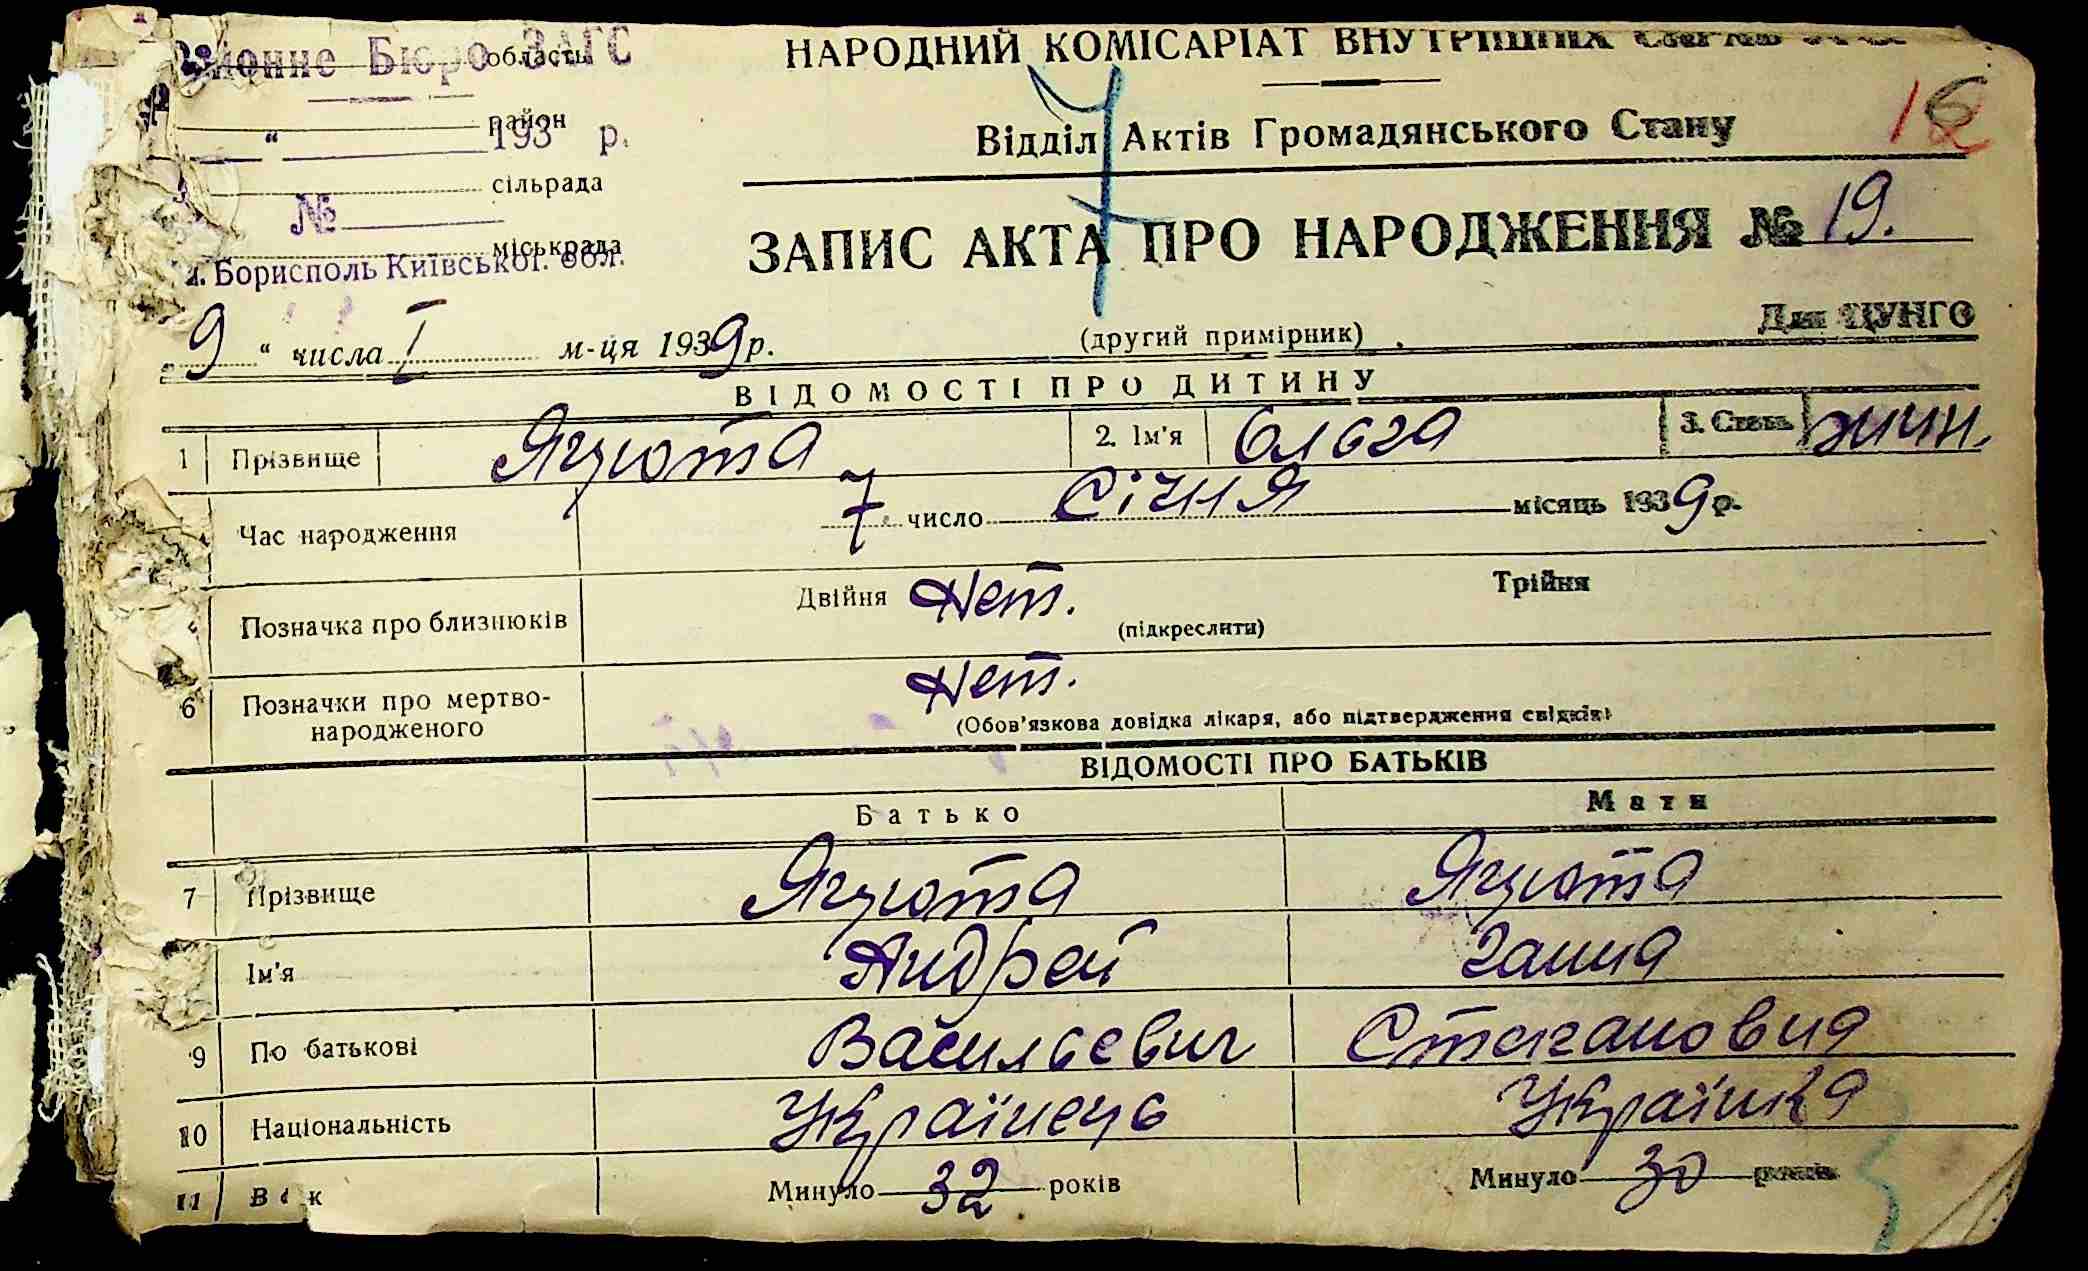 Районне Бюро ЗАГС
область
НАРОДНИЙ КОМІСАРІАТ ВНУТРІШНІХ
район
" 193 р.
Відділ Актів Громадянського Стану
сільрада
№
міськрада
м. Борисполь Київської обл.
ЗАПИС АКТА ПРО НАРОДЖЕННЯ № 19.
9 " числа I м-ця 1939 р.
(другий примірник)
Для ЦУНГО
ВІДОМОСТІ ПРО ДИТИНУ
1 Прізвище Ягнюта 2. Ім'я Ольга 3. Стать жин.
Час народження 7 число Січня місяць 1939 р.
Позначка про близнюків Двійня Нет. Трійня
(підкреслити)
6 Позначки про мертво-
народженого Нет.
(Обов'язкова довідка лікаря, або підтвердження свідків)
ВІДОМОСТІ ПРО БАТЬКІВ
Батько Мати
7 Прізвище Ягнюта Ягнюта
Ім'я Андрей Ганна
9 По батькові Васильевич Степановна
10 Національність Українець Українка
11 Вік Минуло 32 років Минуло 30 років